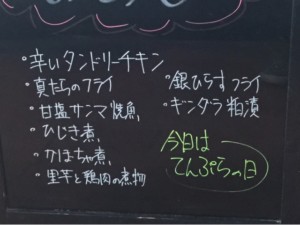 ・辛いタンドリーチキン
・真たらのフライ
・甘塩サンマ焼魚
・ひじき煮
・かぼちゃ煮
・里芋と鶏肉の煮物
・銀ひらすフライ
・ギンダラ粕漬
今日は
てんぷらの日